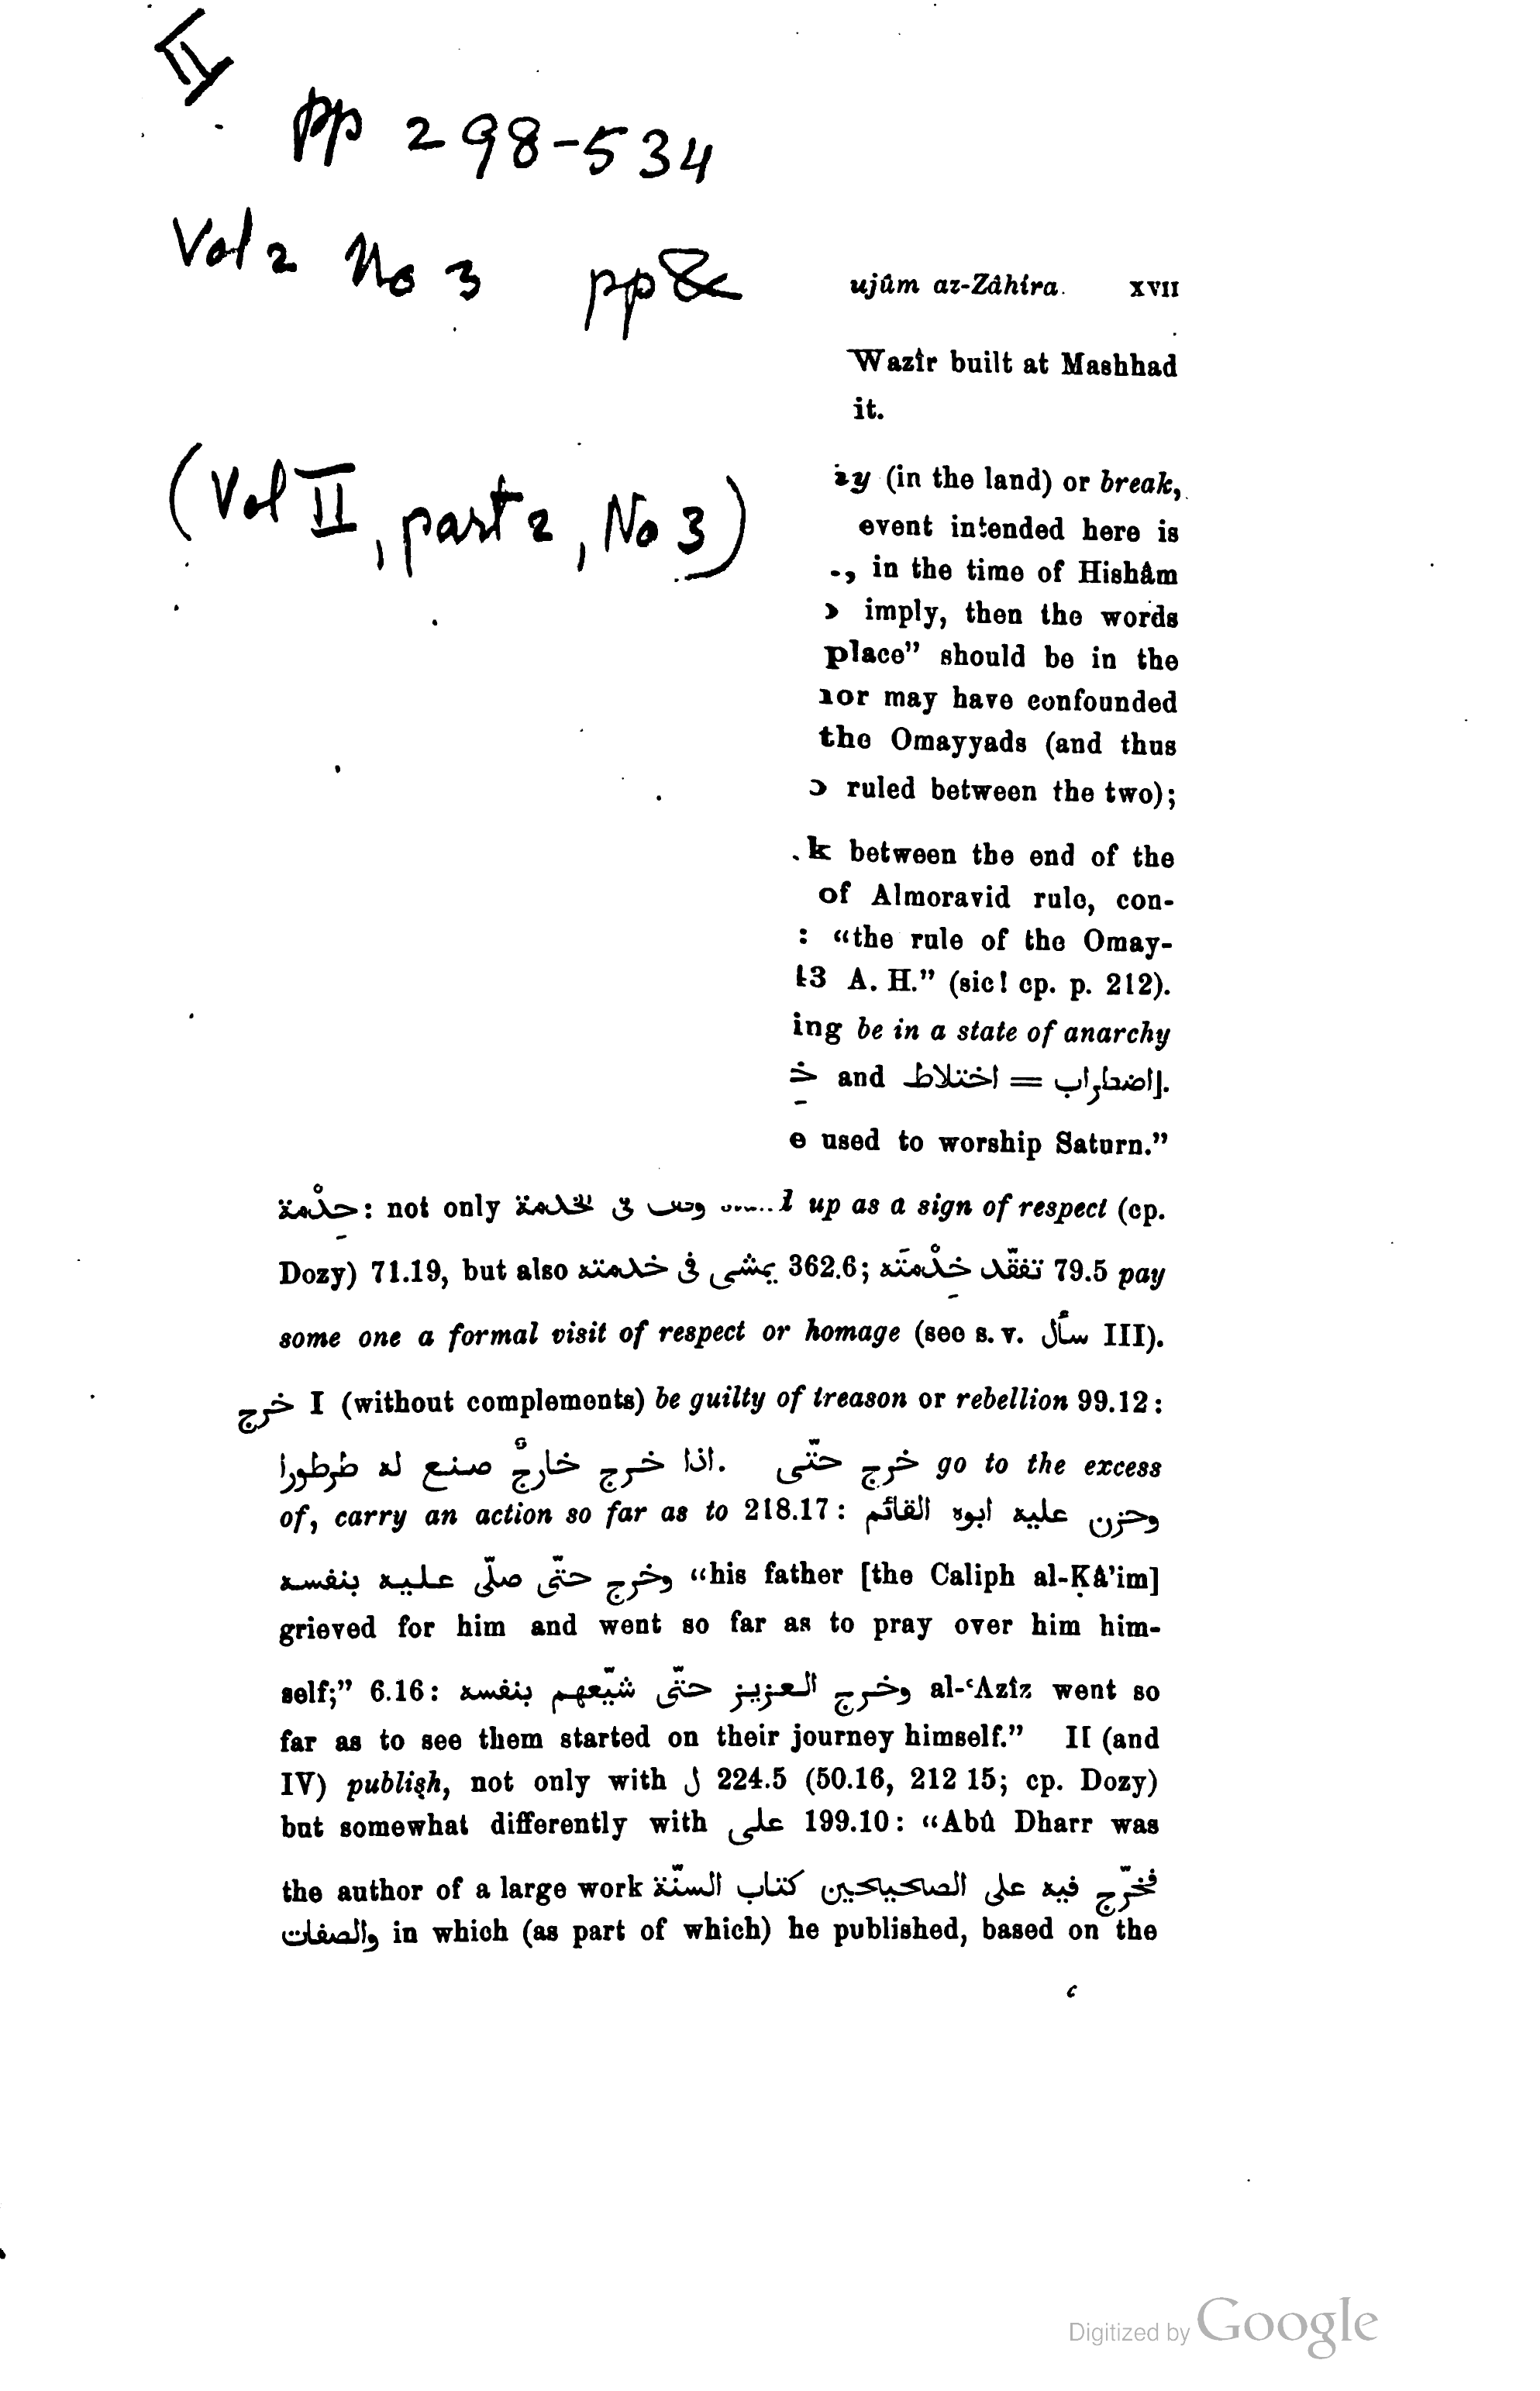 II
pp 298-534
Vol 2 No 3 pp &
(Vol II, part 2, No 3)
ujûm az-Zâhira. XVII
Wazîr built at Mashhad
it.
(in the land) or break,
event intended here is
., in the time of Hishâm
imply, then the words
place” should be in the
may have confounded
the Omayyads (and thus
ruled between the two);
k between the end of the
of Almoravid rule, con-
: “the rule of the Omay-
A. H.” (sic! cp. p. 212).
ing be in a state of anarchy
and اختلاط = اضطراب].
e used to worship Saturn.”
خِدْمة: not only وقف فى الخدمة up as a sign of respect (cp.
Dozy) 71.19, but also يمشى فى خدمته 362.6; تفقّد خِدْمتَه 79.5 pay
some one a formal visit of respect or homage (see s. v. سأل III).
خرج I (without complements) be guilty of treason or rebellion 99.12:
اذا خرج خارجٌ صنع له طرطورا. خرج حتّى go to the excess
of, carry an action so far as to 218.17: وحزن عليه ابوه القائم
وخرج حتّى صلّى عليه بنفسه “his father [the Caliph al-Ḳâ’im]
grieved for him and went so far as to pray over him him-
self;” 6.16: وخرج العزيز حتّى شيّعهم بنفسه al-ʿAzîz went so
far as to see them started on their journey himself.” II (and
IV) publish, not only with ل 224.5 (50.16, 212 15; cp. Dozy)
but somewhat differently with على 199.10: “Abû Dharr was
the author of a large work فخرّج فيه على الصحيحين كتاب السنّة
والصفات in which (as part of which) he published, based on the
c
Digitized by Google